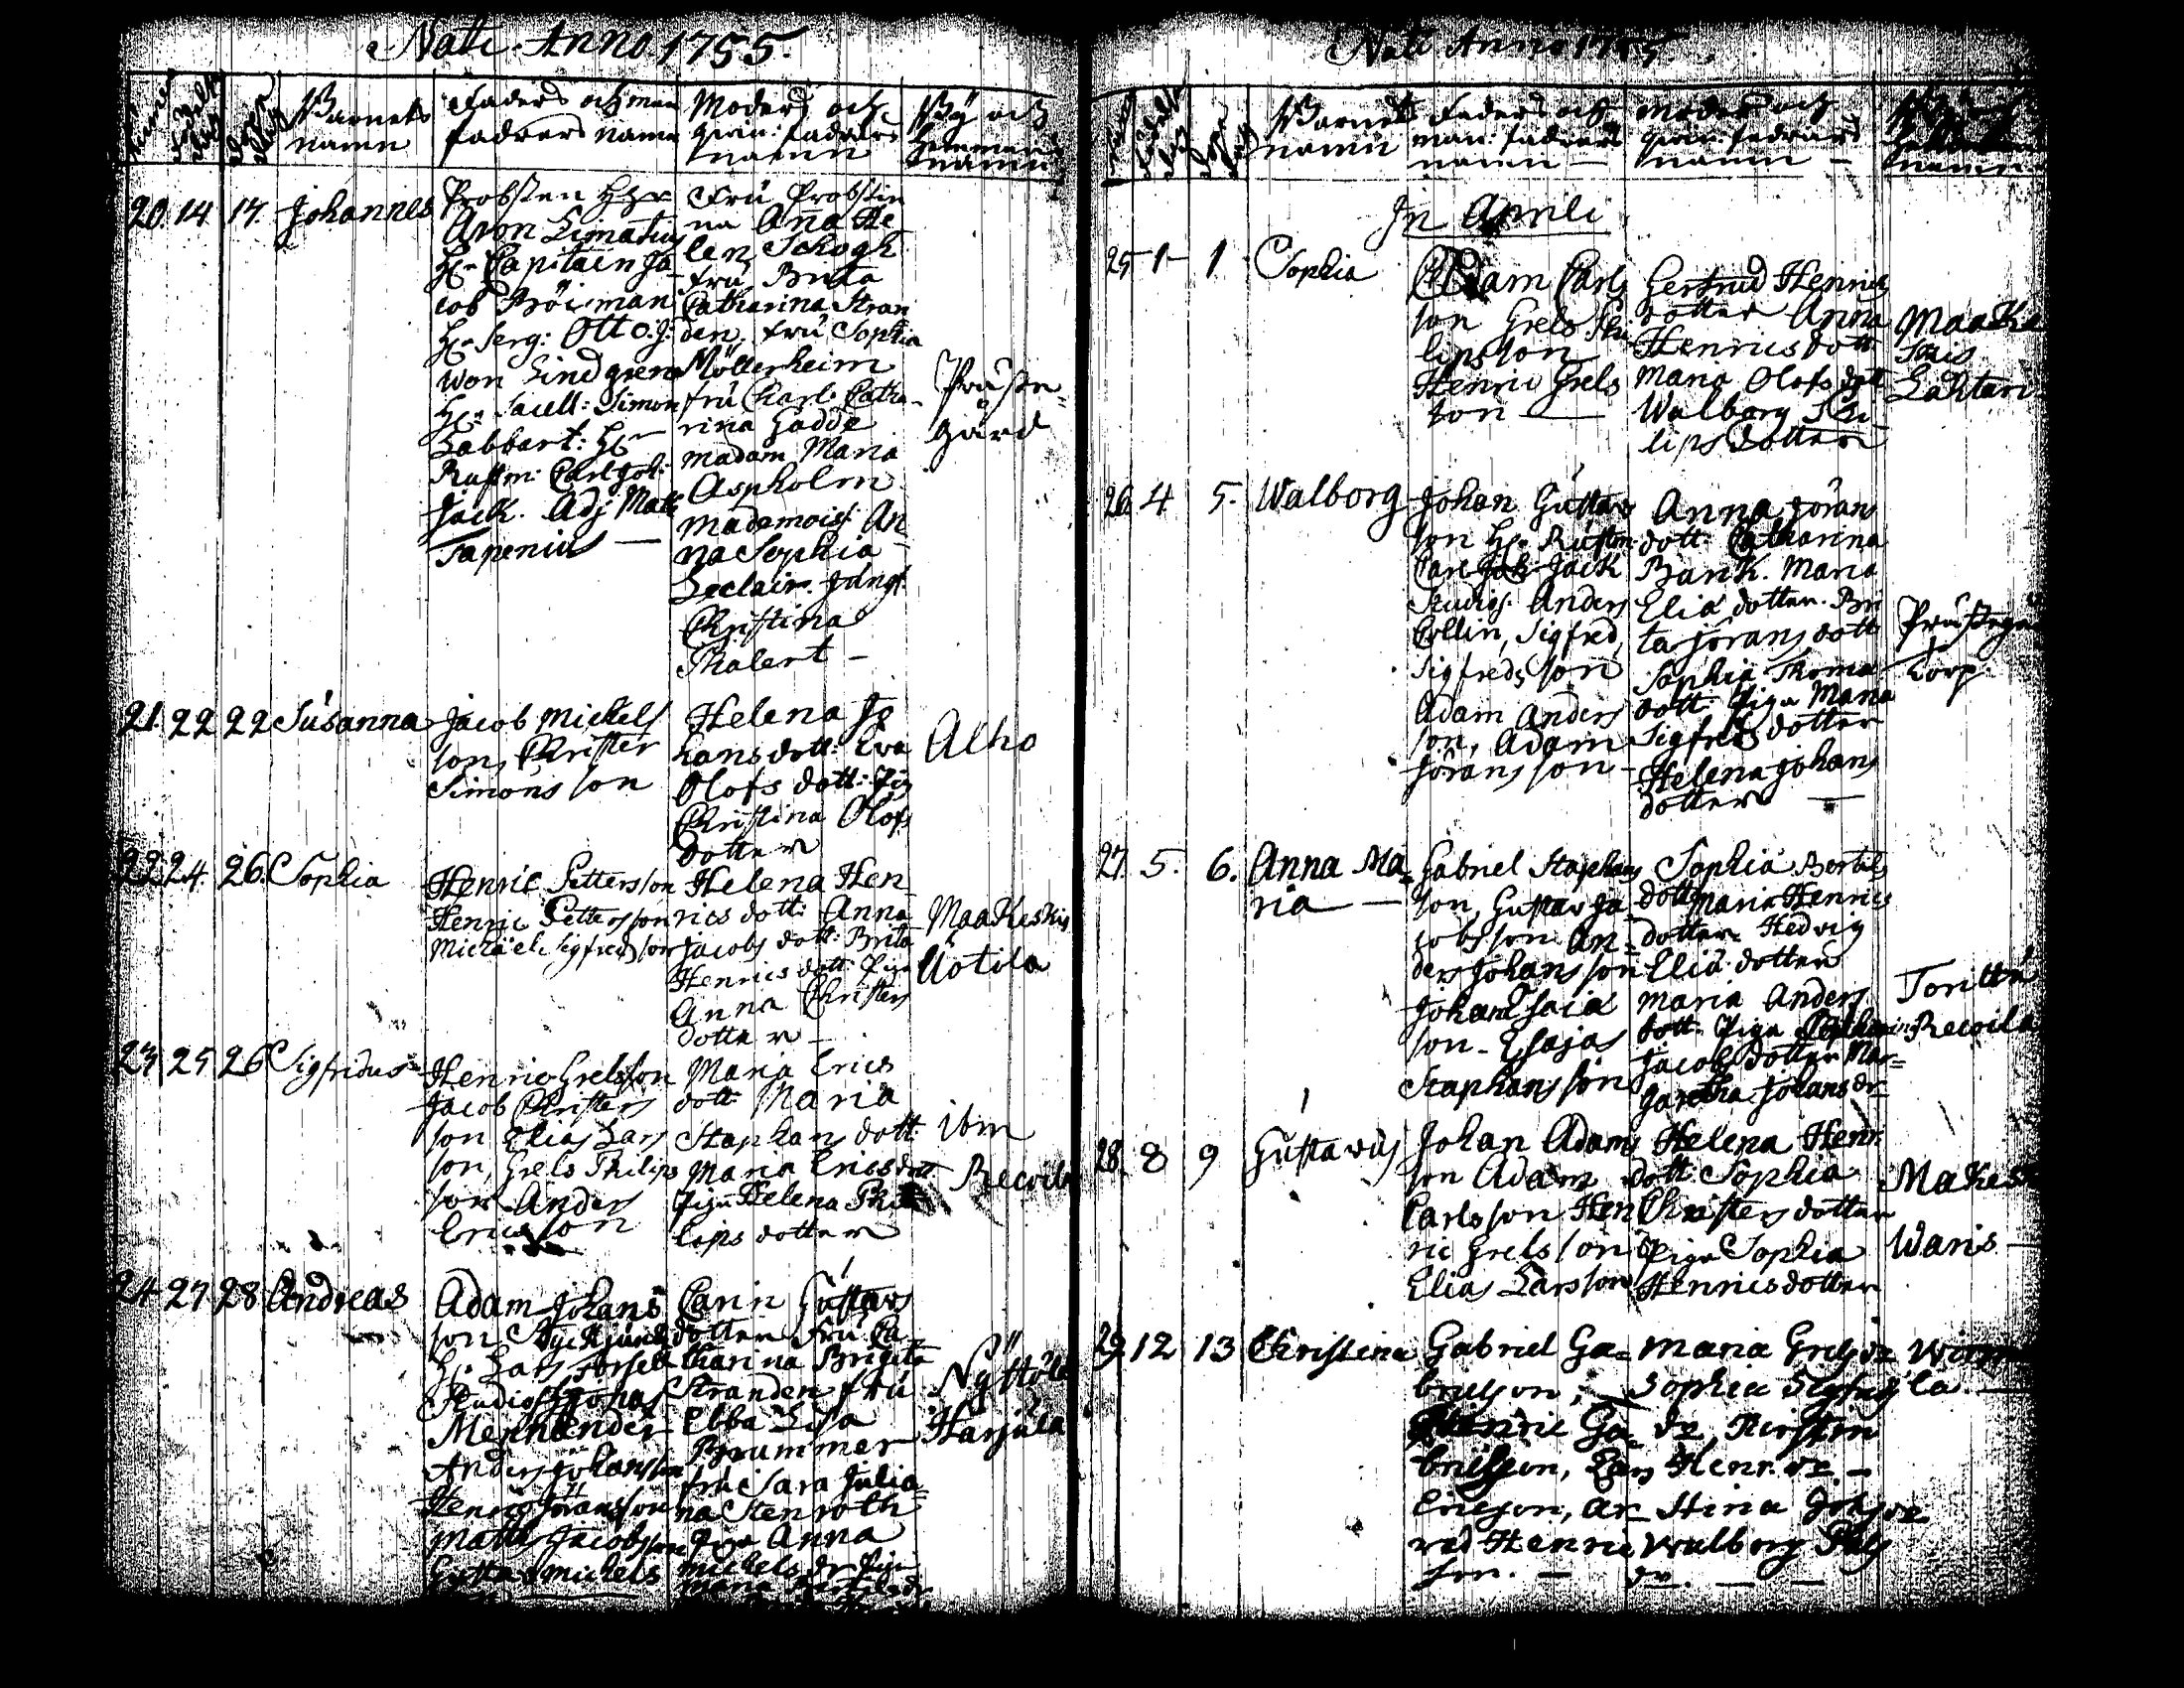 Nati Anno 1755.
Barnets
namn
Faders och man
fadrers namn
Moders och
qwin: fadrers
namn
By och
hemmans
namn
20. 14 17. Johannes
Probsten Hr
Aron Limatius
Hr Capitain Ja
cob Böisman
Hr Serg: Otto. J:
won Lindgren
Hr Sacell: Simon
Labbart: Hr
Rustm: Carl Joh:
Jack. Adj Matt
Tapenius —
Fru Probstin
na Ana He
len Schogh
fru Brita
Catharina Stran
den, fru Sophia
Möllerheim
fru Charl: Catha-
rina Gadde
madam Maria
Aspholm
mademois: An
na Sophia
Leclair. Jungf
Christina
Thalert —
Präste-
gård
21. 22 22 Susanna
Jacob Mickels
son, Christer
Simons son
Helena Jo
hans dott: Eva
Olofs dott: Pig
Christina Olofs
dotter
Alho
22 24. 26. Sophia
Henric Pettersson
Henric Pettersson
Michael Sigfredsson
Helena Hen
rics dott: Anna
Jacobs dott: Brita
Henrics dott: Piga
Anna Christers
dotter —
Maakeskis
Uotila
23 25 26 Sigfridus
Henric Grelsson
Jacob Christers
son Elias Lars
son, Grels Philips
son Anders
Ericsson
Maria Erics
dott: Maria
Staphans dott:
Maria Ericsdott
Piga Helena Phi
lips dotter
ibm
Recoila
24 27 28 Andreas
Adam Johans
son
Hr Lars Forsell
Studios: Johas
Mennander
Anders Johansson
Henric Göransson
Matts Jacobsson
Gustav Mickels
Carin Gustavs
dotter Fru Ca
tharina Brigita
Stranden fru
Ebba Lisa
Brummer
fru Sara Julia
na Stenroth
Piga Anna
Mickels dr Pig
Maria Bertils dr
Nystöld
Harjula
Nati Anno 1755.
Barnets
namn
Faders och
man: fadrers
namn —
Moders och
qwin: fadrers
namn —
namn
In Aprili
25 1 — 1 Sophia
Adam Carls
son Grels Phi
lipsson
Henric Grels
son —
Gertrud Henrics
dotter Anna
Henricsdott
Maria Olofs dott
Walborg Phi
lips dotter
Maake
skis
Lahtari
26. 4 5. Walborg
Johan Gustavs
son Hr Rustm:
Carl Joh: Jack
Studios: Anders
Collin, Sigfred
Sigfreds son
Adam Anders
son, Adam
Jöransson —
Anna Jörans
dott: Catharina
Bank. Maria
Elia dotter. Bri
ta jörans dott
Sophia Thoma
dott: Piga Maria
Sigfreds dotter
Helena Johans
dotter —
Prästegår
torp
27. 5. 6. Anna Ma=
ria —
Gabriel Staphans
son, Gustav Ja
cobsson An=
ders Johansson
Johan Esaia
son — Esajas
Staphans son
Sophia Bertils
dott Maria Henrics
dotter Hedvig
Elia dotter
Maria Anders
dott: Piga
Jacobs dotter Mar=
garetha Johans dr
Torittu
Recoila
28. 8 9 Gustavus
Johan Adams
son Adam
Carlsson Hen
ric Grelsson
Elias Larsson
Helena Henr:
dott: Sophia
Christers dotter
Piga Sophia
Henricsdotter
Makesk
Waris —
29 12 13 Christina
Gabriel Ga=
brielson, —
Henric Ga=
brielson, Lars
Ericson, Ar
wed Henric
son. —
Maria Grels dr
Sophia Sigfrid
dr, Kirstin
Henr. dr. —
Stina Johs dr
Walborg
dr. — —
la. —